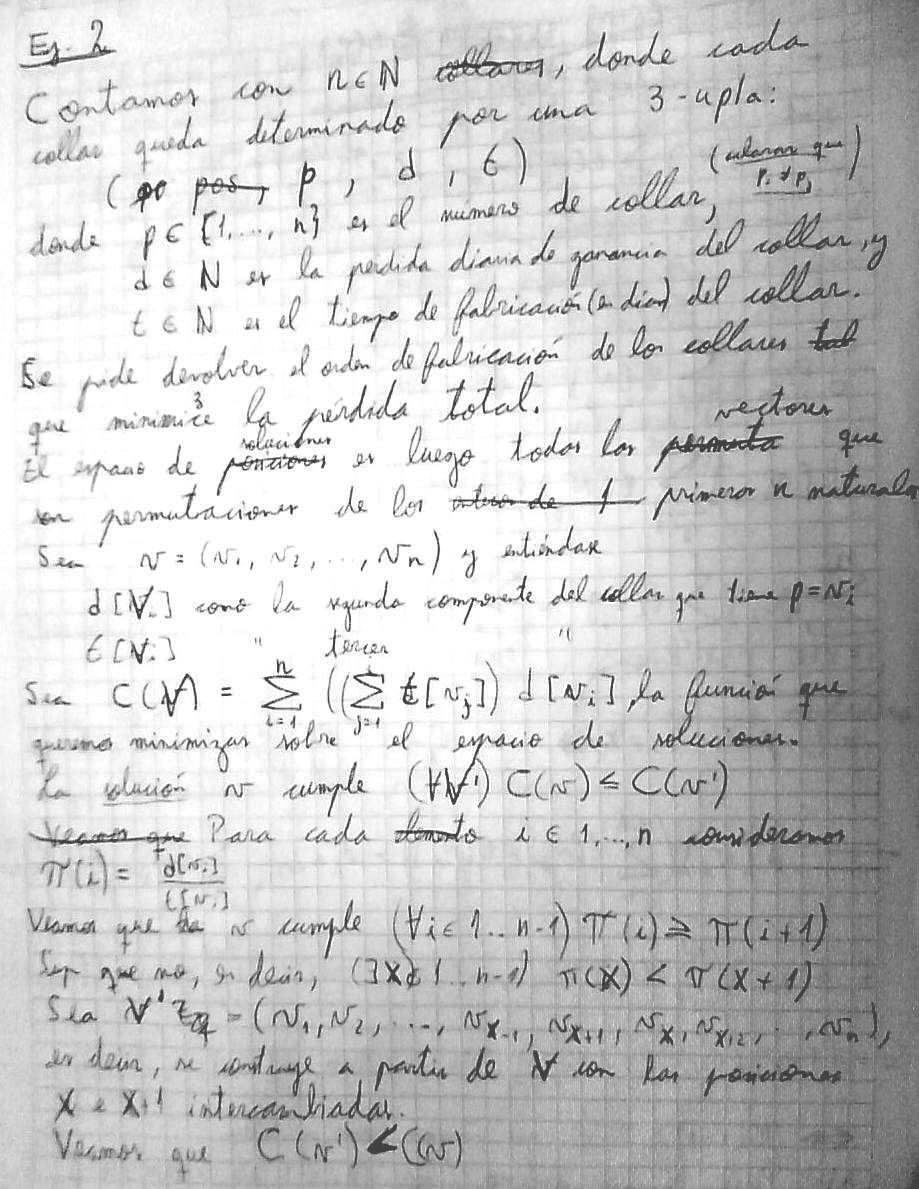 Ej. 2
Contamos con n ∈ N collares, donde cada
collar queda determinado por una 3-upla:
(pos, p, d, t) (aclarar que p_i ≠ p_j)
donde p ∈ {1,..., n} es el número de collar,
d ∈ N es la perdida diaria de ganancia del collar, y
t ∈ N es el tiempo de fabricación (en días) del collar.
Se pide devolver el orden de fabricación de los collares tal
que minimice la pérdida total.
El espacio de posiciones soluciones es luego todos los permuta vectores que
son permutaciones de los primeros n naturales
Sea v = (v_1, v_2, ..., v_n) y entiéndase
d[v_i] como la segunda componente del collar que tiene p = v_i
t[v_i] " tercer "
Sea C(v) = \sum_{i=1}^{n} ((\sum_{j=1}^{i} t[v_j]) d[v_i]), la función que
queremos minimizar sobre el espacio de soluciones.
La solución v cumple (∀v') C(v) ≤ C(v')
Veamos que Para cada i ∈ 1,...,n consideramos
π(i) = d[v_i] / t[v_i]
Veamos que v cumple (∀i ∈ 1..n-1) π(i) ≥ π(i+1)
Sup que no, es decir, (∃x ∈ 1..n-1) π(x) < π(x+1)
Sea v' = (v_1, v_2, ..., v_{x-1}, v_{x+1}, v_x, v_{x+2}, ..., v_n),
es decir, se construye a partir de v con las posiciones
x e x+1 intercambiadas.
Veamos que C(v') < C(v)